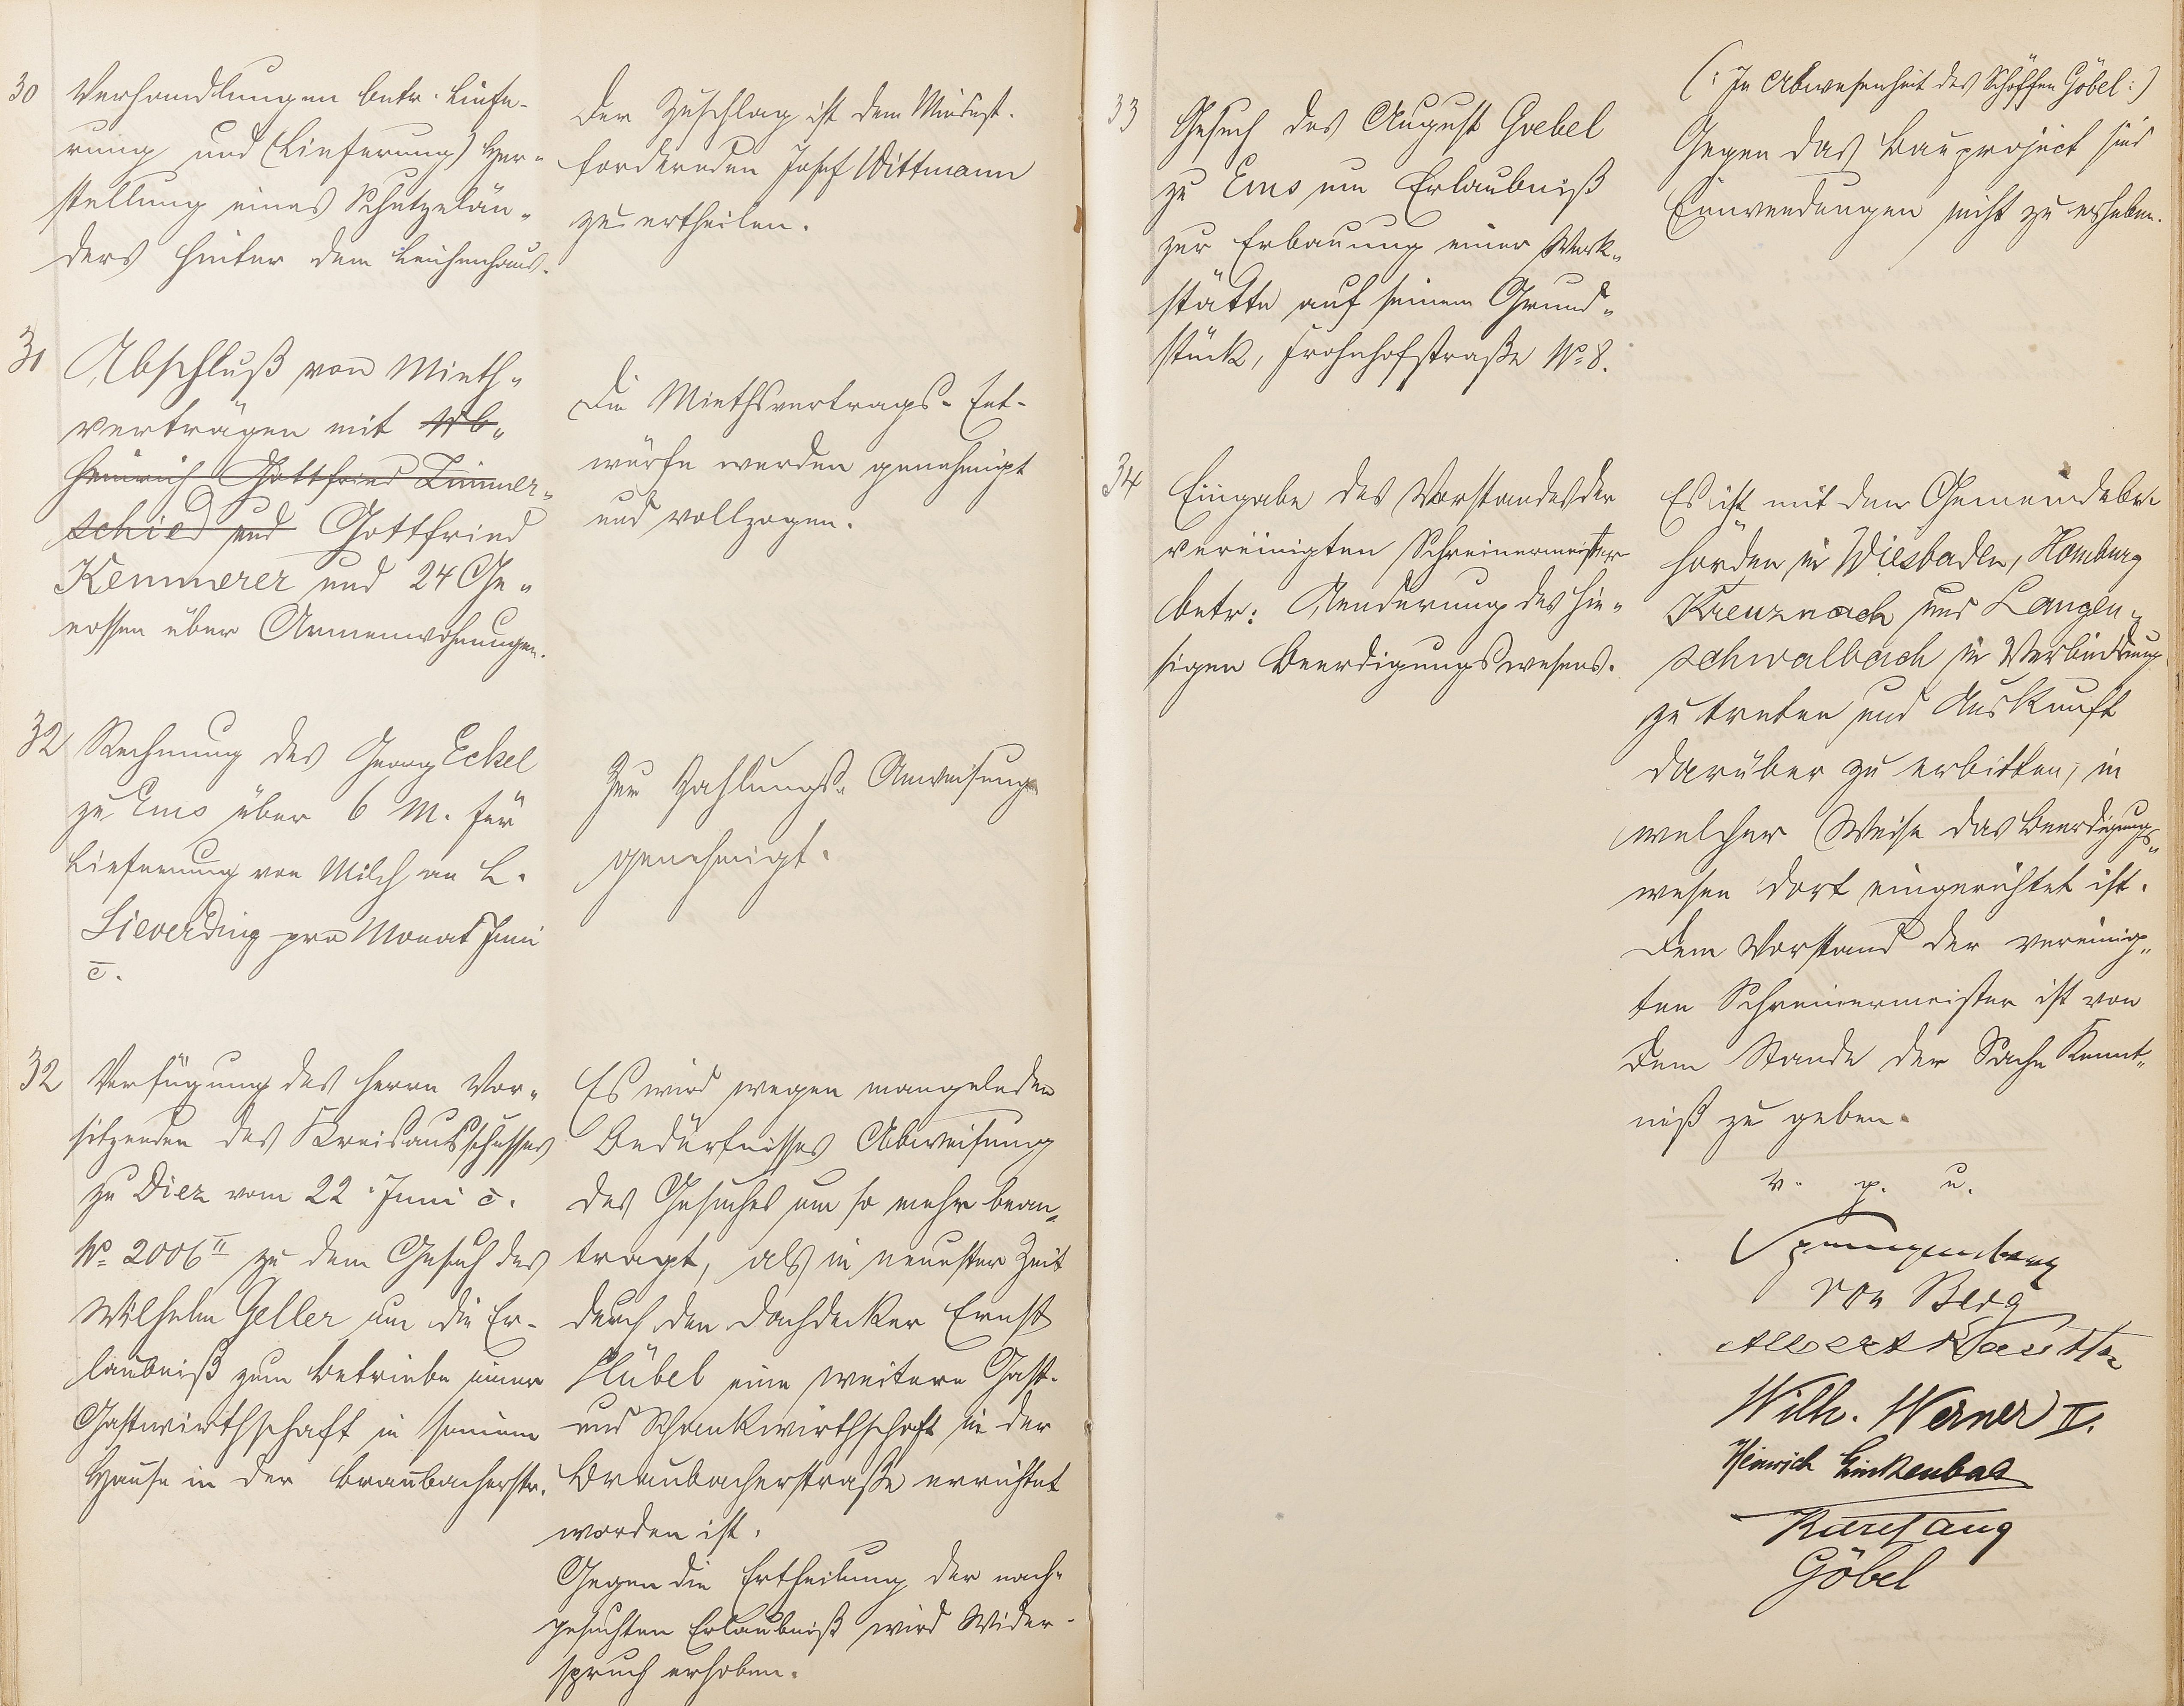 30
Verhandlungen betr. Liefe-
rung und (Lieferung) Her-
stellung eines Schutzgelän-
ders hinter dem Leichenhaus.
Der Zuschlag ist dem Mindest-
fordernden Josef Wittmann
zu ertheilen.
31
Abschluß von Mieth-
verträgen mit
Heinrich Gottfried Zimmer-
schied und Gottfried
Kemmerer und 24 Ge-
nossen über Armenwohnungen.
Die Miethsvertrags-Ent-
würfe werden genehmigt
und vollzogen.
32
Rechnung des Georg Eckel
zu Ems über 6 M. für
Lieferung von Milch an L.
Sieverding pro Monat Juni
c.
Zur Zahlungs-Anweisung
genehmigt.
32
Verfügung des Herrn Vor-
sitzenden des Kreisausschusses
zu Diez vom 22. Juni c.
No. 2006 II zu dem Gesuch des
Wilhelm Geller um die Er-
laubniß zum Betriebe einer
Gastwirthschaft in seinem
Hause in der Braubacherstr.
Es wird wegen mangelnden
Bedürfnisses Abweisung
des Gesuches um so mehr bean-
tragt, als in neuester Zeit
durch den Dachdecker Ernst
Hübel eine weitere Gast-
und Schankwirthschaft in der
Braubacherstraße errichtet
worden ist.
Gegen die Ertheilung der nach-
gesuchten Erlaubniß wird Wider-
spruch erhoben.
33
Gesuch des August Goebel
zu Ems um Erlaubniß
zur Erbauung einer Werk-
stätte auf seinem Grund-
stück, Frohnhofstraße No. 8.
(: In Abwesenheit des Schöffen Göbel :)
Gegen das Bauproject sind
Einwendungen nicht zu erheben.
34
Eingabe des Vorstandes der
vereinigten Schreinermeister
betr: Aenderung des hie-
sigen Beerdigungswesens.
Es ist mit den Gemeindebe-
hörden in Wiesbaden, Homburg
Kreuznach und Langen-
schwalbach in Verbindung
zu treten und Auskunft
darüber zu erbitten, in
welcher Weise das Beerdigungs-
wesen dort eingerichtet ist.
Dem Vorstand der vereinig-
ten Schreinermeister ist von
dem Stande der Sache Kennt-
niß zu geben.
v. g. u.
Spangenberg
von Berg
Albert Kauth
Wilh. Werner II.
Heinrich Linkenbach
Karl Lang
Göbel